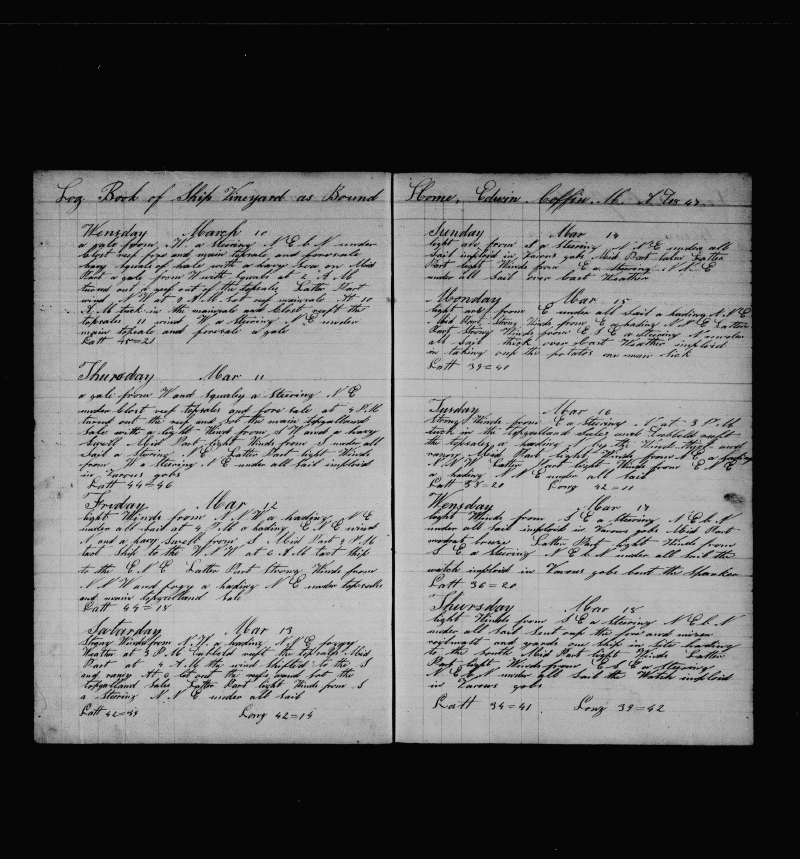 Log Book of Ship Vineyard as Bound
Wensday March 10
a gale from W a Stering N E b N under
Clost reef fore and main topsale and foresale
havy Squals of hale with a havy Sea on Mid
Part a gale from W with Squals at 2 A M
turnd out a reef out of the topsales Latter Part
wind N W at 8 A M Sot reef mainsale At 10
A M tuck in the mainsale and Clost reeft the
topsales wind W a Stering N E under
main topsale and foresale a gale
Latt 45=21
Thursday Mar 11
a gale from W and Squaly a Stering N E
under Clost reef topsales and fore sale at 4 P M
turnd out the reef and Sot the main topgallant
Sale with a light Wind from S W and a havy
Swell Mid Part light Winds from S under all
Sail a Stering N E Latter Part light Winds
from W a Stering N E under all Sail imploid
in Varous gobs
Latt 44=46
Friday Mar 12
light Winds from N N W a hading N E
under all Sail at 4 P M a hading E N E wind
N and a havy Swell from S Mid Part 9 P M
tact Ship to the W N W at 6 A M tact Ship
to the E N E Latter Part Strong Winds from
N N W and fogy a hading N E under topsales
and main topgalland Sale
Latt 44=18
Saturday Mar 13
Strong Winds from N W a hading N E foggy
Weather at 3 P M Dubbld reeft the topsales Mid
Part at 4 A M the wind Shiftid to the S
and rany At 6 let out the reefs and Sot the
topgalland Sales Latter Part light Winds from S
a Stering N N E under all Sail
Latt 42=39 Long 42=15
Home, Edwin Coffin M. A D 1847
Sunday Mar 14
light ars from S a Stering N N E under all
Sail imploid in Varous gobs Mid Part Calm Latter
Part light Winds from E a Stering N N E
under all Sail over Cast Weather
Monday Mar 15
light ars from E under all Sail a hading N N E
Mid Part Strong Winds from E a hading N N E Latter
Part Strong Winds from E S E a Stering N under
all Sail thick over Cast Weather imploid
in taking oup the potatos one man Sick
Latt 39=40
Tusday Mar 16
Strong Winds from E a Stering N at 3 P M
tuck in the topgalland Sales and Dubbld reeft
the topsales a hading N by the Wind thick and
rany Mid Part light Winds from N E a hading
N N W Latter Part light Winds from E N E
a hading N N E under all Sail
Latt 38=20 Long 42=11
Wensday Mar 17
light Winds from S E a Stering N E b N
under all Sail imploid in Varous gobs Mid Part
modrat breze Latter Part light Winds from
S E a Stering N E b N under all Sail the
watch imploid in Varous gobs bent the Spanker
Latt 36=20
Thursday Mar 18
light Winds from S E a Stering N E b N
under all Sail Sent oup the fore and mizen
royalmast and yards one Ship in Site hading
to the South Mid Part light Winds Latter
Part light Winds from E S E a Stering
N E b N under all Sail the Watch imploid
in Varous gobs
Latt 34=41 Long 39=42